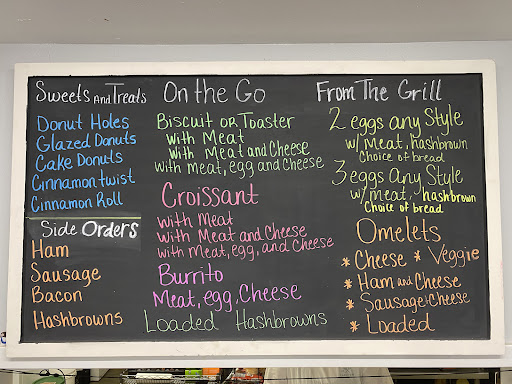 Sweets And Treats
Donut Holes
Glazed Donuts
Cake Donuts
Cinnamon twist
Cinnamon Roll
Side Orders
Ham
Sausage
Bacon
Hashbrowns
On the Go
Biscuit or Toaster
with Meat
with Meat and Cheese
with meat, egg and Cheese
Croissant
with Meat
with Meat and Cheese
with meat, egg, and Cheese
Burrito
Meat, egg, Cheese
Loaded Hashbrowns
From The Grill
2 eggs any Style
w/ Meat, hashbrown
Choice of bread
3 eggs Any Style
w/ meat, hashbrown
Choice of bread
Omelets
* Cheese * Veggie
* Ham and Cheese
* Sausage & Cheese
* Loaded